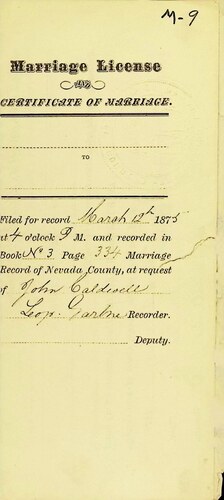 M-9
Marriage License
AND
CERTIFICATE OF MARRIAGE.
TO
Filed for record March 12th 1875
at 4 o'clock P M. and recorded in
Book No 3 Page 334 Marriage
Record of Nevada County, at request
of John Caldwell
Recorder.
Deputy.